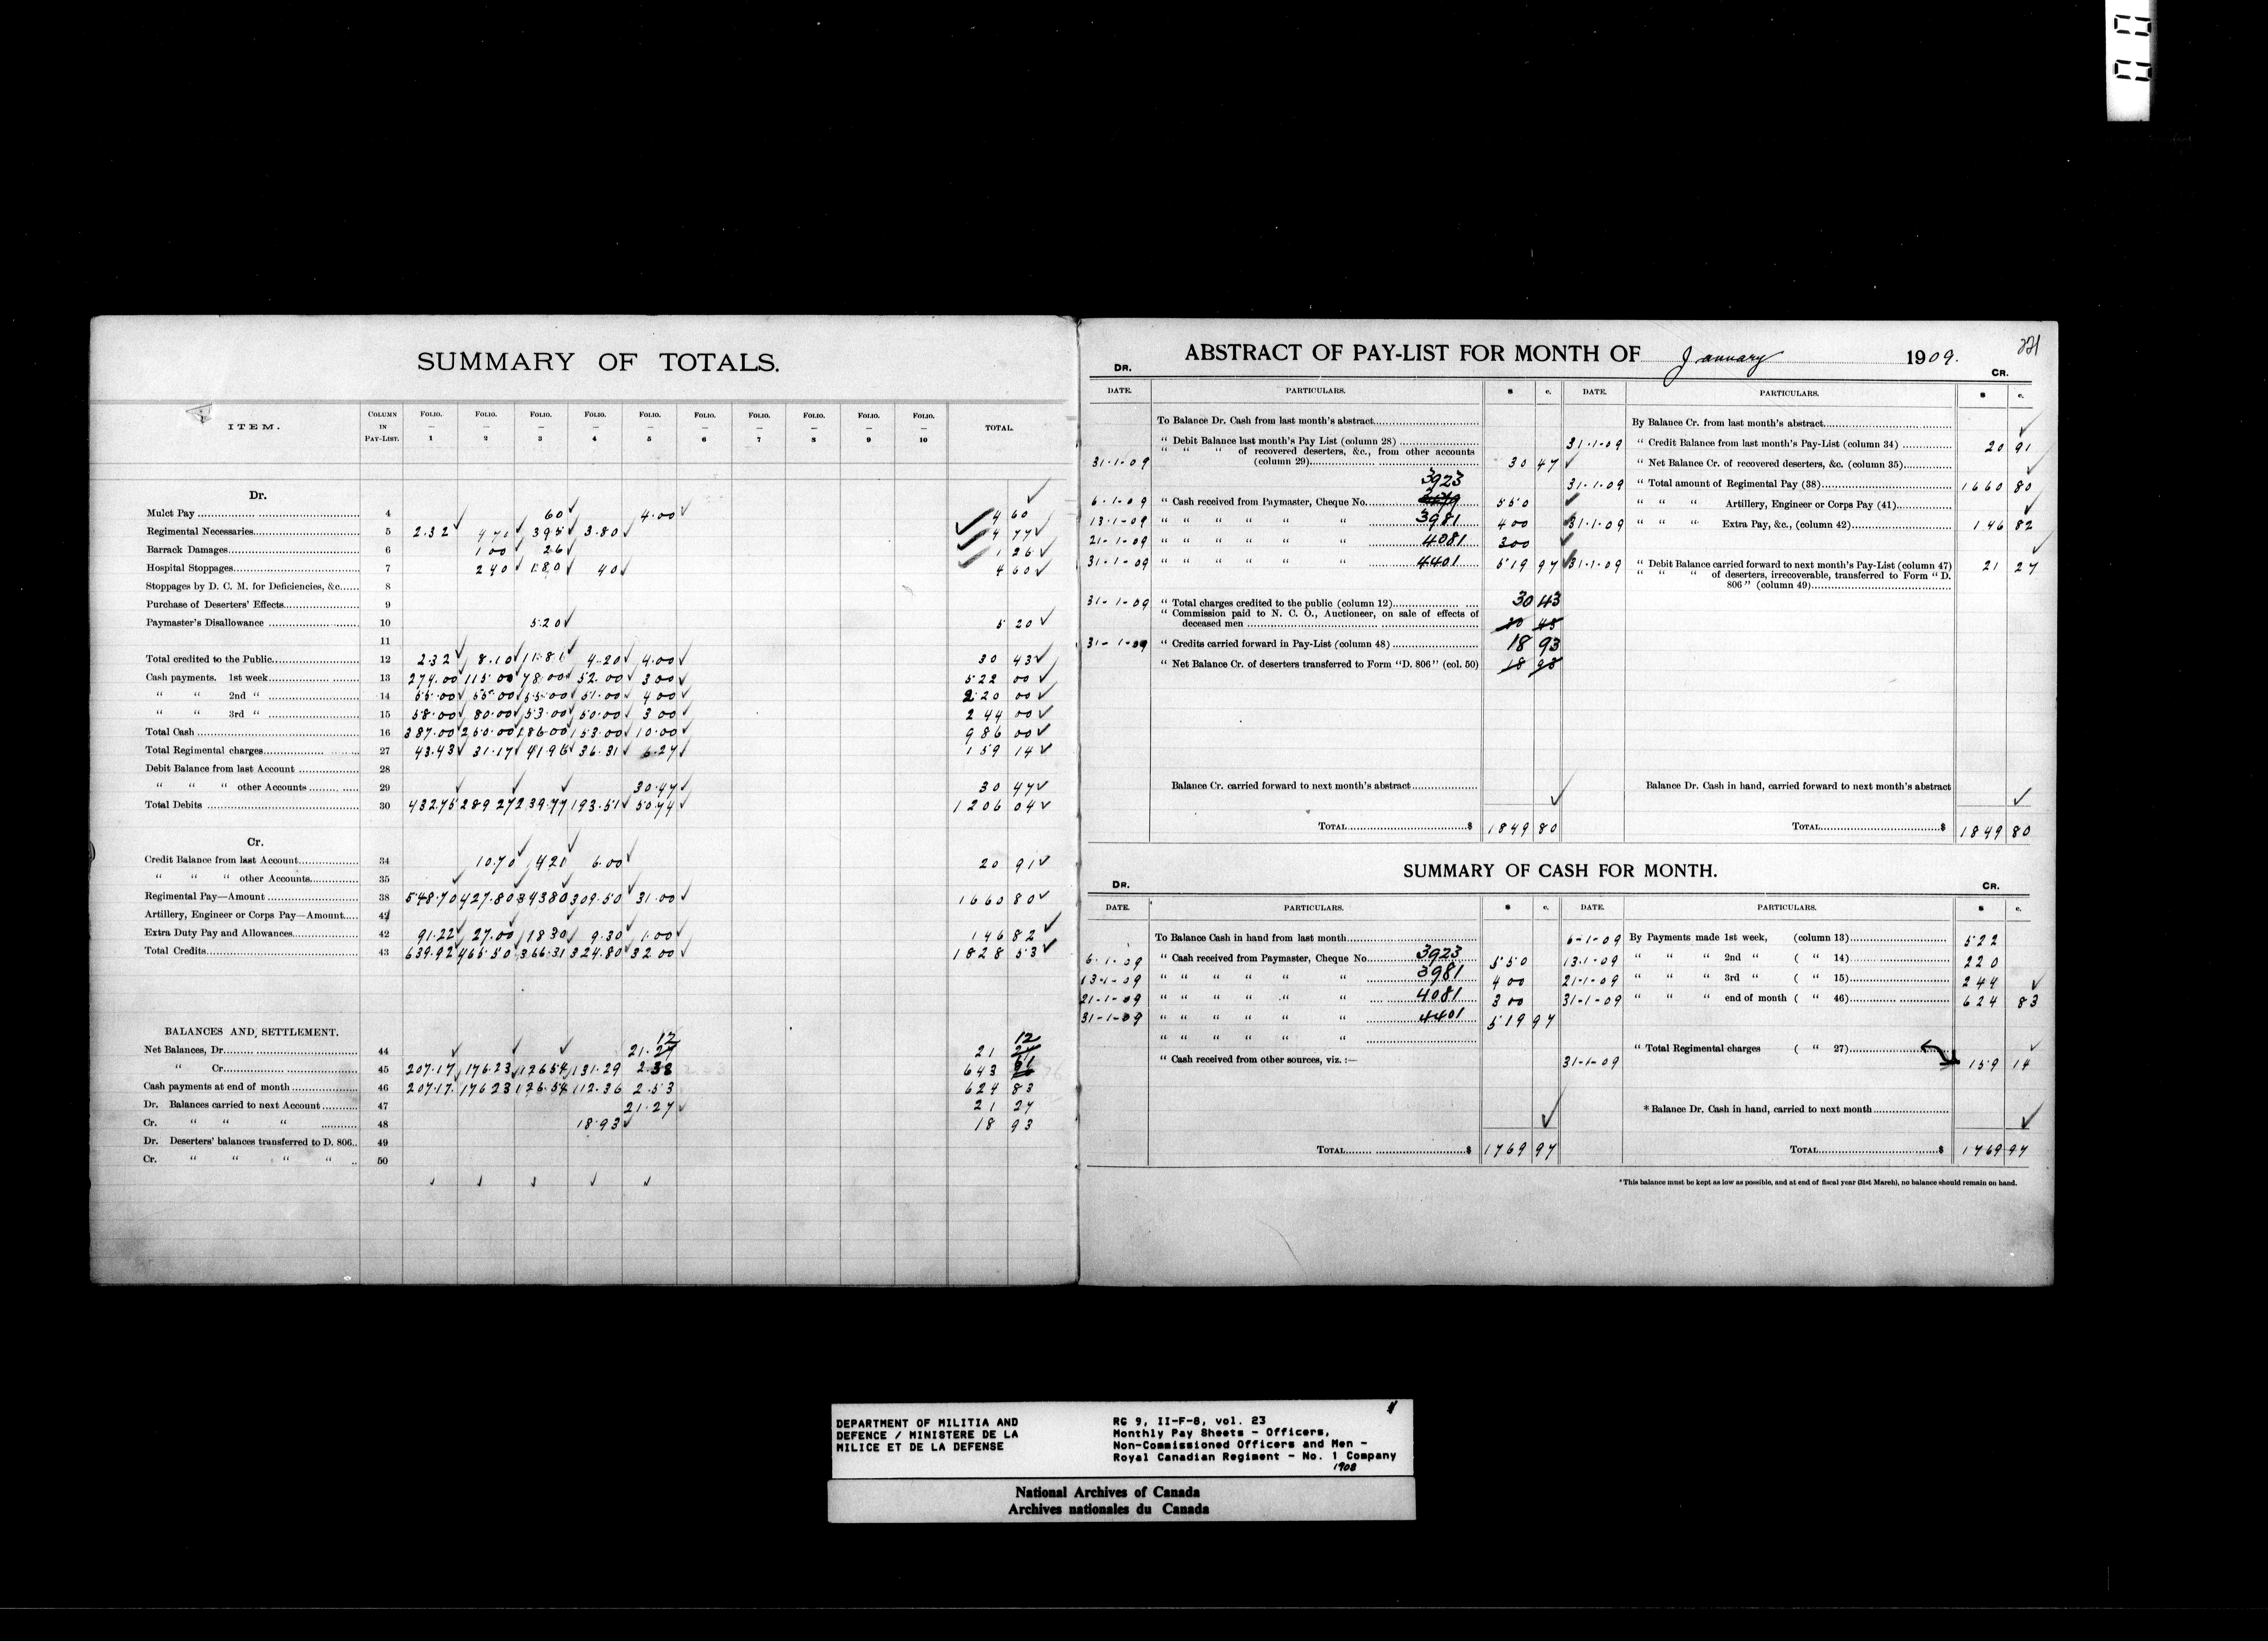 SUMMARY OF TOTALS.
ITEM. COLUMN IN PAY-LIST. FOLIO. — 1 FOLIO. — 2 FOLIO. — 3 FOLIO. — 4 FOLIO. — 5 FOLIO. — 6 FOLIO. — 7 FOLIO. — 8 FOLIO. — 9 FOLIO. — 10 TOTAL.
Dr.
Mulct Pay 4 60 4.00 4 60
Regimental Necessaries 5 2.32 4 70 3 95 3.80 14 77
Barrack Damages 6 1 00 26 1 26
Hospital Stoppages 7 2 40 1.80 40 4 60
Stoppages by D. C. M. for Deficiencies, &c. 8
Purchase of Deserters' Effects 9
Paymaster's Disallowance 10 5.20 5 20
11
Total credited to the Public 12 2.32 8.10 11.81 4.20 4.00 30 43
Cash payments. 1st week 13 274.00 115.00 78.00 52.00 3 00 522 00
" " 2nd " 14 55.00 55.00 55.00 51.00 4 00 220 00
" " 3rd " 15 58.00 80.00 53.00 50.00 3 00 244 00
Total Cash 16 387.00 250.00 186.00 153.00 10.00 986 00
Total Regimental charges 27 43.43 31.17 41 96 36.31 6.27 159 14
Debit Balance from last Account 28
" " " other Accounts 29 30.47 30 47
Total Debits 30 432.75 289 27 239.77 193.51 50.74 1206 04
Cr.
Credit Balance from last Account 34 10.70 4 21 6.00 20 91
" " " other Accounts 35
Regimental Pay—Amount 38 548.70 427.80 343 80 309.50 31.00 1660 80
Artillery, Engineer or Corps Pay—Amount 41
Extra Duty Pay and Allowances 42 91.22 27.00 18 30 9.30 1.00 146 82
Total Credits 43 639.92 465.50 366.31 324.80 32 00 1828 53
BALANCES AND SETTLEMENT.
12 12
Net Balances, Dr. 44 21.27 21 27
" Cr. 45 207.17 176.23 126 54 131.29 2.38 643 61
Cash payments at end of month 46 207.17 176 23 126.54 112.36 2.53 624 83
Dr. Balances carried to next Account 47 21.27 21 27
Cr. " " " 48 18.93 18 93
Dr. Deserters' balances transferred to D. 806 49
Cr. " " " " 50
221
ABSTRACT OF PAY-LIST FOR MONTH OF January 1909.
DR. CR.
DATE. PARTICULARS. $ c. DATE. PARTICULARS. $ c.
To Balance Dr. Cash from last month's abstract
" Debit Balance last month's Pay List (column 28)
" " " of recovered deserters, &c., from other accounts
31-1-09 (column 29) 30 47
3923
6-1-09 " Cash received from Paymaster, Cheque No. 550
13-1-09 " " " " " " 3981 400
21-1-09 " " " " " " 4081 300
31-1-09 " " " " " " 4401 519 97
31-1-09 " Total charges credited to the public (column 12) 30 43
" Commission paid to N. C. O., Auctioneer, on sale of effects of
deceased men 30 43
31-1-09 " Credits carried forward in Pay-List (column 48) 18 93
" Net Balance Cr. of deserters transferred to Form "D. 806" (col. 50) 18 93
Balance Cr. carried forward to next month's abstract
TOTAL $ 1849 80
By Balance Cr. from last month's abstract
31-1-09 " Credit Balance from last month's Pay-List (column 34) 20 91
" Net Balance Cr. of recovered deserters, &c. (column 35)
31-1-09 " Total amount of Regimental Pay (38) 1660 80
" " " Artillery, Engineer or Corps Pay (41)
31-1-09 " " " Extra Pay, &c., (column 42) 146 82
31-1-09 " Debit Balance carried forward to next month's Pay-List (column 47) 21 27
" " " of deserters, irrecoverable, transferred to Form "D.
806" (column 49)
Balance Dr. Cash in hand, carried forward to next month's abstract
TOTAL $ 1849 80
SUMMARY OF CASH FOR MONTH.
DR. CR.
DATE. PARTICULARS. $ c. DATE. PARTICULARS. $ c.
To Balance Cash in hand from last month
6-1-09 " Cash received from Paymaster, Cheque No. 3923 550
13-1-09 " " " " " " 3981 400
21-1-09 " " " " " " 4081 300
31-1-09 " " " " " " 4401 519 97
" " " " " "
" Cash received from other sources, viz.:—
TOTAL $ 1769 97
6-1-09 By Payments made 1st week, (column 13) 522
13-1-09 " " " 2nd " ( " 14) 220
21-1-09 " " " 3rd " ( " 15) 244
31-1-09 " " " end of month ( " 46) 624 83
" Total Regimental charges ( " 27)
31-1-09 159 14
* Balance Dr. Cash in hand, carried to next month
TOTAL $ 1769 97
*This balance must be kept as low as possible, and at end of fiscal year (31st March), no balance should remain on hand.
DEPARTMENT OF MILITIA AND
DEFENCE / MINISTERE DE LA
MILICE ET DE LA DEFENSE
RG 9, II-F-8, vol. 23
Monthly Pay Sheets - Officers,
Non-Commissioned Officers and Men -
Royal Canadian Regiment - No. 1 Company
1908
National Archives of Canada
Archives nationales du Canada